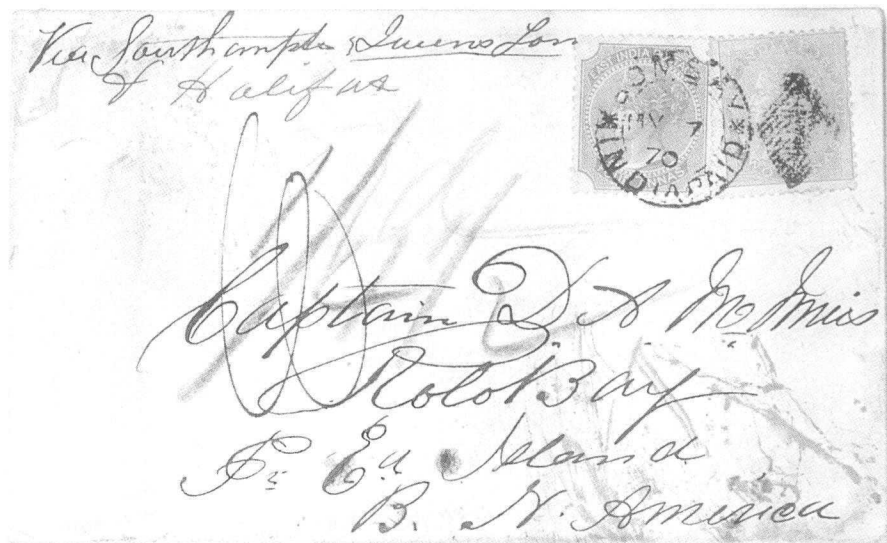 Via Southampton, Queenston
& Halifax
EAST INDIA
BOMBAY
MY 7
70
INDIA PAID
Captain D. A. McInnis
Rolo Bay
Pr Ed Island
B. N. America